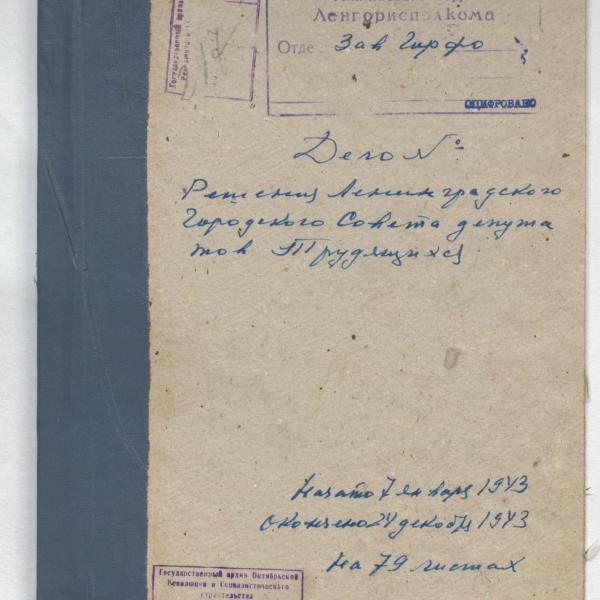 Ленгорисполкома
Отде Зав Горфо
ОЦИФРОВАНО
Государственный архив
Дело №
Решения Ленинградского
Городского Совета депута
тов Трудящихся
Начато 7 января 1943
Окончено 24 декабр 1943
На 79 листах
Государственный архив Октябрьской
Революции и Социалистического
строительства